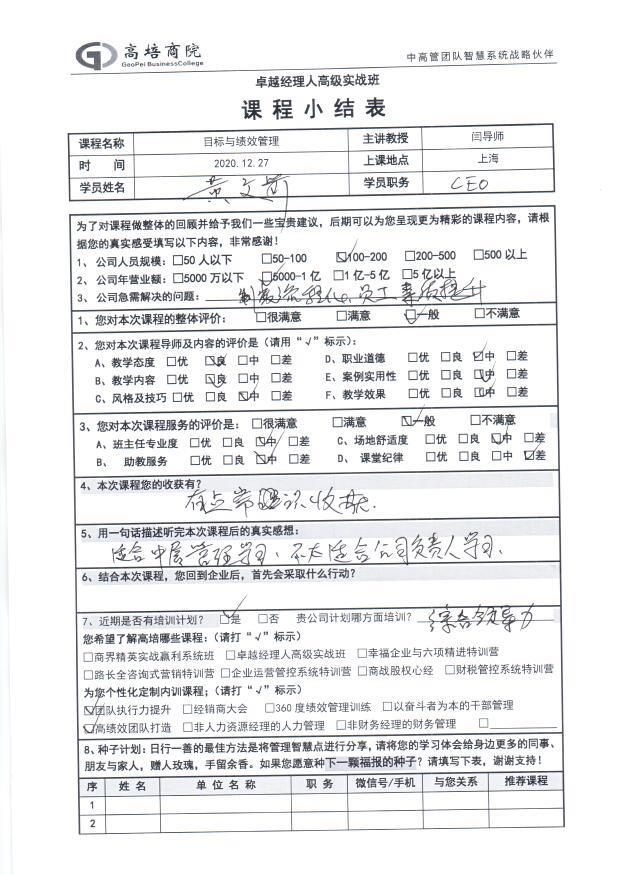 高培商院
GaoPei BusinessCollege
中高管团队智慧系统战略伙伴
卓越经理人高级实战班
课程小结表
课程名称 目标与绩效管理 主讲教授 闫导师
时 间 2020.12.27 上课地点 上海
学员姓名 黄文前 学员职务 CEO
为了对课程做整体的回顾并给予我们一些宝贵建议，后期可以为您呈现更为精彩的课程内容，请根
据您的真实感受填写以下内容，非常感谢！
1、公司人员规模：□50人以下 □50-100 ☑100-200 □200-500 □500以上
2、公司年营业额：□5000万以下 ☑5000-1亿 □1亿-5亿 □5亿以上
3、公司急需解决的问题： 制度流程化、员工素质提升
1、您对本次课程的整体评价：□很满意 □满意 ☑一般 □不满意
2、您对本次课程导师及内容的评价是（请用“√”标示）：
A、教学态度 □优 ☑良 □中 □差 D、职业道德 □优 □良 ☑中 □差
B、教学内容 □优 ☑良 □中 □差 E、案例实用性 □优 □良 ☑中 □差
C、风格及技巧 □优 □良 ☑中 □差 F、教学效果 □优 □良 ☑中 □差
3、您对本次课程服务的评价是：□很满意 □满意 ☑一般 □不满意
A、班主任专业度 □优 □良 ☑中 □差 C、场地舒适度 □优 □良 ☑中 □差
B、 助教服务 □优 □良 ☑中 □差 D、 课堂纪律 □优 □良 □中 ☑差
4、本次课程您的收获有？
有点常识收获.
5、用一句话描述听完本次课程后的真实感想：
适合中层管理学习、不太适合公司负责人学习、
6、结合本次课程，您回到企业后，首先会采取什么行动？
7、近期是否有培训计划？ ☑是 □否 贵公司计划哪方面培训？ 综合领导力
您希望了解高培哪些课程：（请打“√”标示）
□商界精英实战赢利系统班 □卓越经理人高级实战班 □幸福企业与六项精进特训营
□路长全咨询式营销特训营 □企业运营管控系统特训营 □商战股权心经 □财税管控系统特训营
为您个性化定制内训课程；（请打“√”标示）
☑团队执行力提升 □经销商大会 □360度绩效管理训练 □以奋斗者为本的干部管理
☑高绩效团队打造 □非人力资源经理的人力管理 □非财务经理的财务管理 □
8、种子计划：日行一善的最佳方法是将管理智慧点进行分享，请将您的学习体会给身边更多的同事、
朋友与家人，赠人玫瑰，手留余香。如果您愿意种下一颗福报的种子？请填写下表，谢谢支持！
序 姓 名 单 位 名 称 职 务 微信号/手机 与您关系 推荐课程
1
2